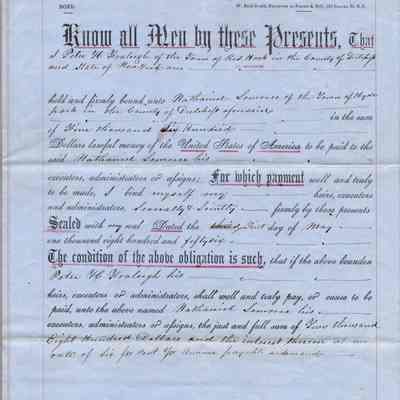 BOND.
Know all Men by these Presents, That
I Peter H Traleigh of the Town of Red Hook in the County of Dutchess
and State of New York am
held and firmly bound unto Nathaniel of the Town of Hyde
park in the County of Dutchess aforesaid
in the sum
of Five thousand Six Hundred
Dollars lawful money of the United States of America to be paid to the
said Nathaniel his
executors, administrators or assigns: For which payment well and truly
to be made, I bind myself my heirs, executors
and administrators, firmly by these presents
Sealed with my seal Dated the first day of May
one thousand eight hundred and fifty six
The condition of the above obligation is such, that if the above bounden
Peter H Traleigh his
heirs, executors or administrators, shall well and truly pay, or cause to be
paid, unto the above named Nathaniel his
executors, administrators or assigns, the just and full sum of Two thousand
Eight Hundred Dollars and the interest thereon at
rate of six per cent per annum payable